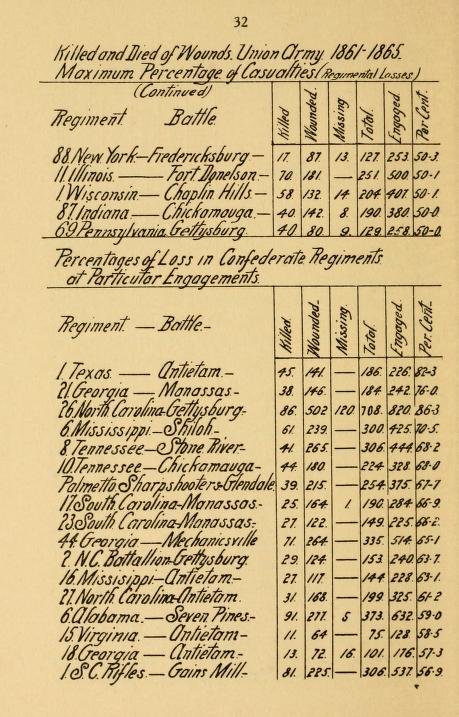 32
Killed and Died of Wounds. Union Army 1861-1865.
Maximum Percentage of Casualties (Regimental Losses)
(Continued)
Regiment Battle. Killed. Wounded. Missing. Total. Engaged. Per Cent.
88. New York — Fredericksburg — 17. 87. 13. 127. 253. 50-3.
11. Illinois. — Fort Donelson — 70. 181. — 251. 500. 50-1
1. Wisconsin — Chaplin Hills. — 58. 132. 14. 204. 407. 50-1.
87. Indiana — Chickamauga. — 40. 142. 8. 190. 380. 50-0
69. Pennsylvania. Gettysburg. 40. 80. 9. 129. 258. 50-0.
Percentages of Loss in Confederate Regiments
at Particular Engagements.
Regiment. — Battle. — Killed. Wounded. Missing. Total. Engaged. Per Cent.
1. Texas — Antietam. — 45. 141. — 186. 226. 82-3
21. Georgia — Manassas - 38. 146. — 184. 242. 76-0.
26. North Carolina - Gettysburg - 86. 502 120 708. 820. 86-3
6. Mississippi — Shiloh - 61. 239. — 300. 425. 70-5.
8. Tennessee — Stone River - 41. 265. — 306. 444. 68-2
10. Tennessee — Chickamauga - 44. 180. — 224. 328. 68-0
Palmetto Sharpshooters - Glendale. 39. 215. — 254. 375. 67-7
17. South Carolina - Manassas. - 25. 164. 1. 190. 284. 66-9.
23. South Carolina - Manassas. - 27. 122. — 149. 225. 66-2.
44. Georgia — Mechanicsville 71. 264. — 335. 514. 65-1
2. N.C. Battallion - Gettysburg. 29. 124. — 153. 240. 63-7.
16. Mississippi — Antietam — 27. 117. — 144. 228. 63-1.
27. North Carolina - Antietam. 31. 168. — 199. 325. 61-2
6. Alabama. — Seven Pines. - 91. 277. 5 373. 632. 59-0
15. Virginia. — Antietam - 11. 64 — 75. 128. 58-5
18. Georgia — Antietam. - 13. 72. 16. 101. 176. 57-3
1. S.C. Rifles. — Gains Mill - 81. 225. — 306. 537. 56-9.